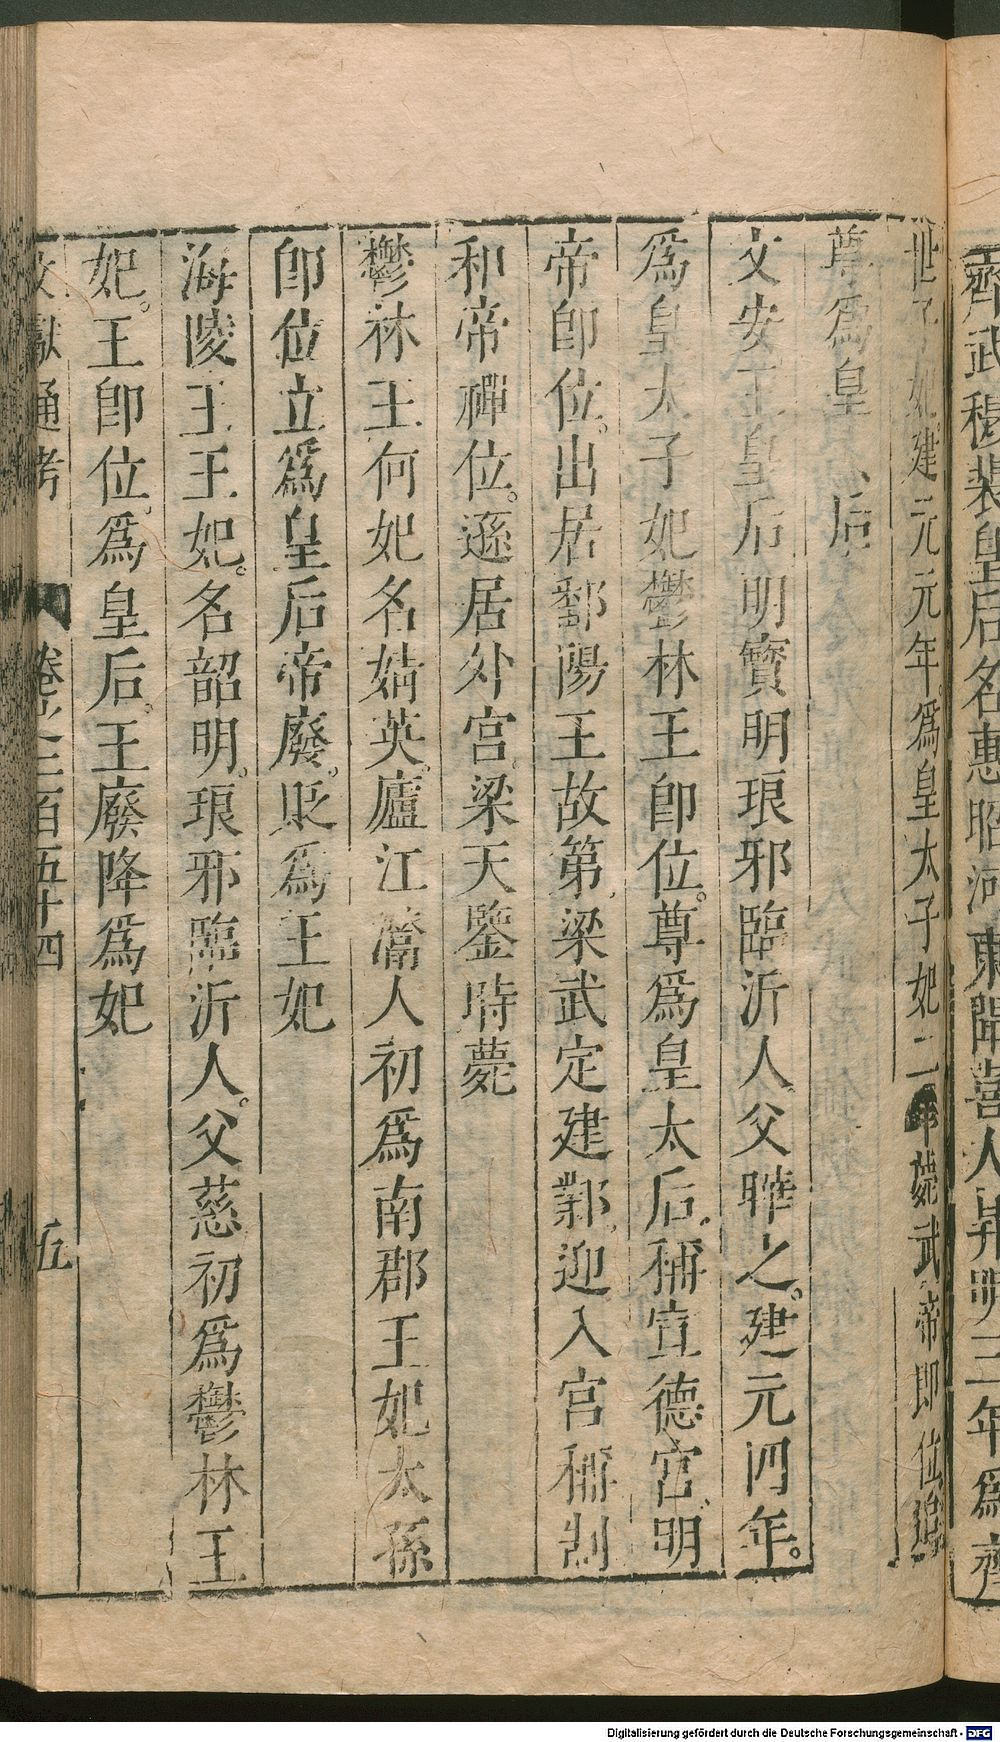 齊武穆裴皇后名惠昭河東聞喜人昇明三年爲齊
世子妃建元元年爲皇太子妃二年薨武帝即位追
尊爲皇后
文安王皇后明寶明琅邪臨沂人父曄之建元四年
爲皇太子妃鬱林王即位尊爲皇太后稱宣德宮明
帝即位出居鄱陽王故第梁武定建鄴迎入宮稱制
和帝禪位遜居外宮梁天鑒時薨
鬱林王何妃名婧英廬江灊人初爲南郡王妃太孫
即位立爲皇后帝廢貶爲王妃
海陵王王妃名韶明琅邪臨沂人父慈初爲鬱林王
妃王即位爲皇后王廢降爲妃
文獻通考 卷之三百五十四 五
Digitalisierung gefördert durch die Deutsche Forschungsgemeinschaft - DFG